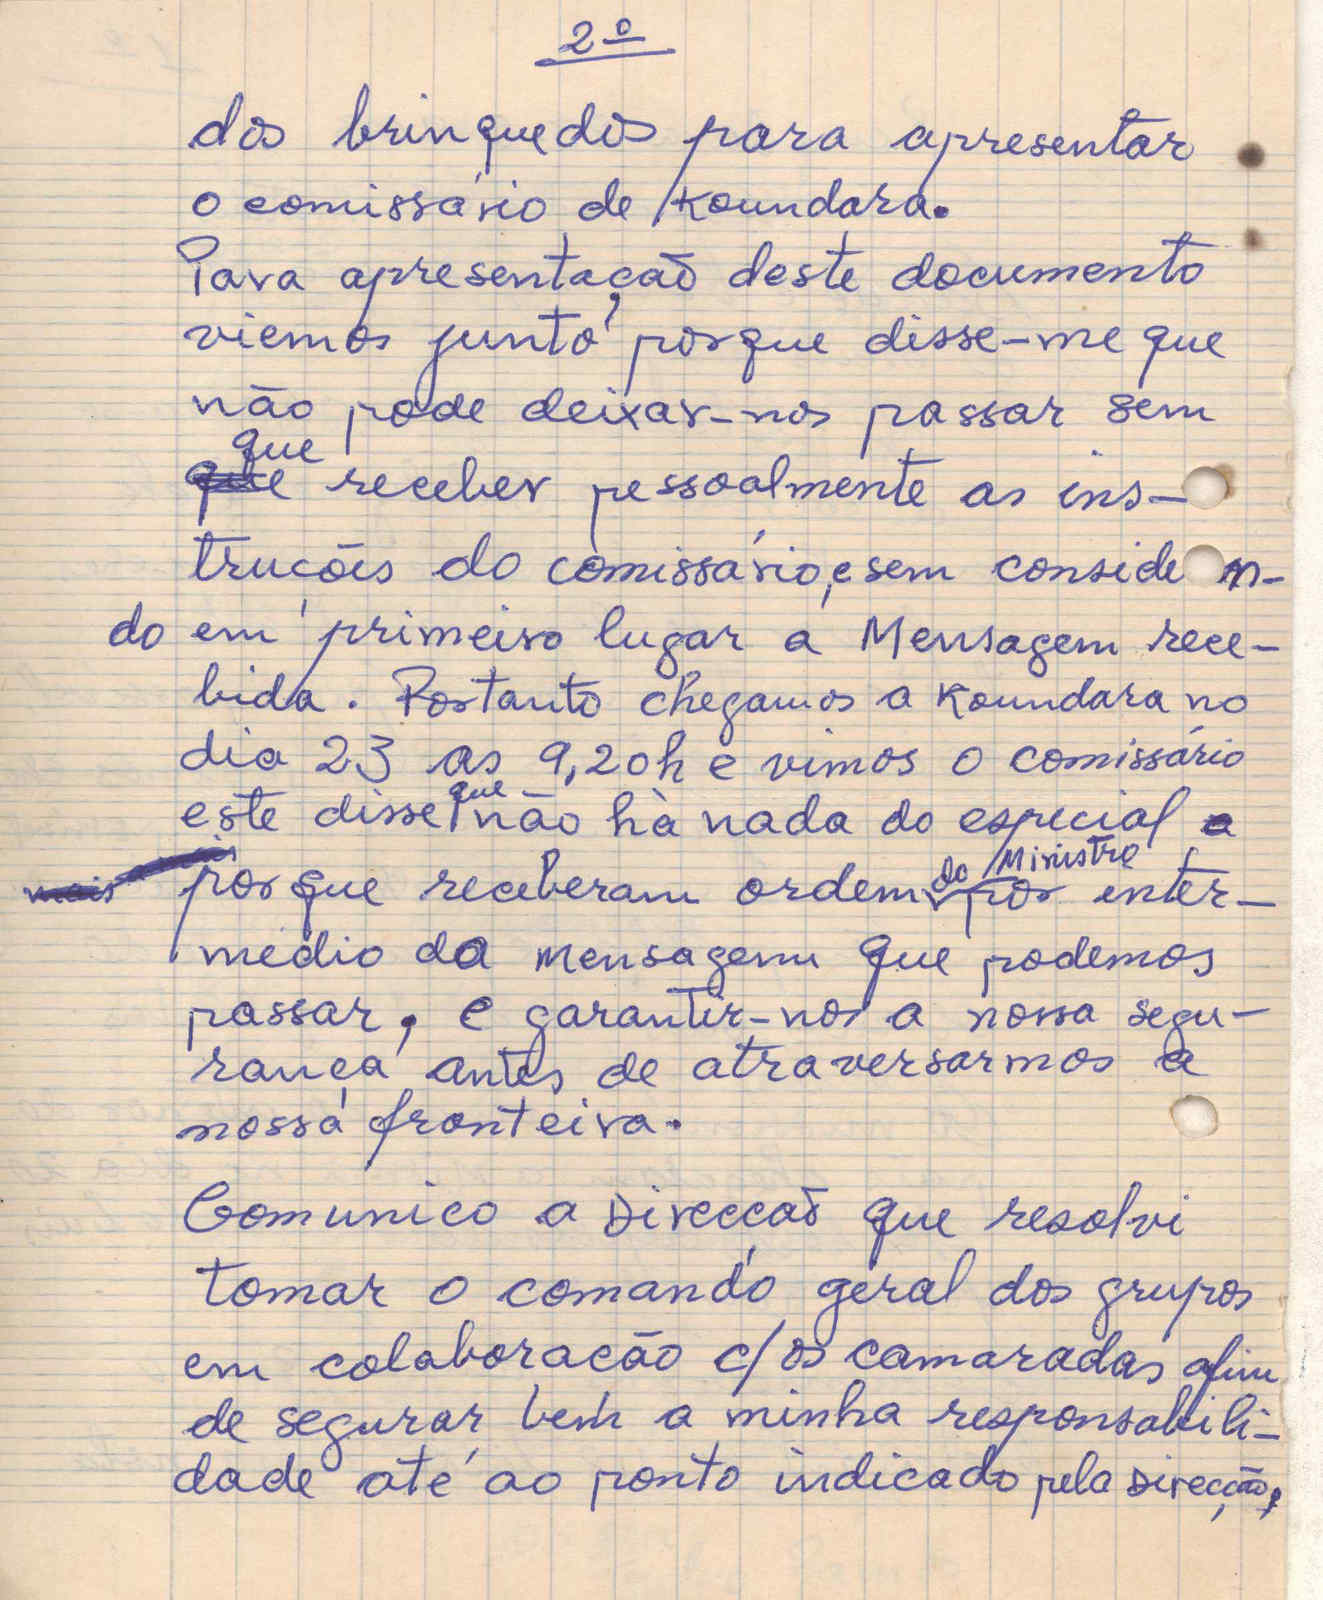 2º
dos brinquedos para apresentar
o comissário de Koundara.
Para apresentação deste documento
viemos junto porque disse-me que
não pode deixar-nos passar sem
que
receber pessoalmente as ins-
truções do comissário, e sem conside n-
do em primeiro lugar a Mensagem rece-
bida. Portanto chegamos a Koundara no
dia 23 as 9,20h e vimos o comissário
este disse que não hà nada do especial a
mais porque receberam ordem do Ministro por inter-
médio da Mensagem que podemos
passar, e garantir-nos a nossa segu-
rança antes de atraversarmos a
nossa fronteira.
Comunico a Direcção que resolvi
tomar o comando geral dos grupos
em colaboração c/os camaradas afim
de segurar bem a minha responsabili-
dade até ao ponto indicado pela Direcção,